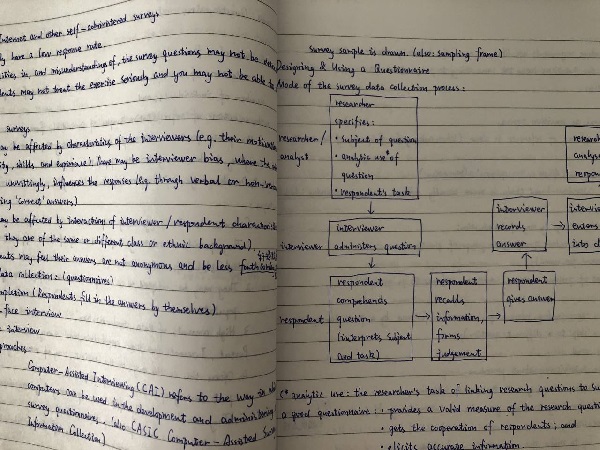 Internet and other self-administered surveys
have a low response rate.
in, and misunderstanding of, the survey questions may not be
may not treat the exercise seriously and you may not be able to
surveys
be affected by characteristics of the interviewers (e.g. their
skills and experience); there may be interviewer bias, where the
unwittingly, influences the responses (e.g. through verbal or non-
'correct' answers)
be affected by interaction of interviewer / respondent
they are of the same or different class or ethnic background)
may feel their answers are not anonymous and be less
data collections: (questionnaires)
(Respondents fill in the answers by themselves)
interview
interview
Computer-Assisted Interviewing (CAI) refers to the way in
computers can be used in the development and
survey questionnaires. (also CASIC Computer-Assisted
Information Collection)
survey sample is drawn. (also: sampling frame)
Designing & Using a Questionnaire
Mode of the survey data collection process:
researcher / analyst
researcher
specifies:
• subject of question
• analytic use* of
question
• respondent's task
interviewer
interviewer
administers question
interviewer
records
answer
respondent
respondent
comprehends
question
(interprets subject
and task)
respondent
recalls
information,
forms
judgement
respondent
gives answer
analytic use: the researcher's task of linking research questions to
a good questionnaire: • provides a valid measure of the research
• gets the cooperation of respondents; and
• elicits accurate information.